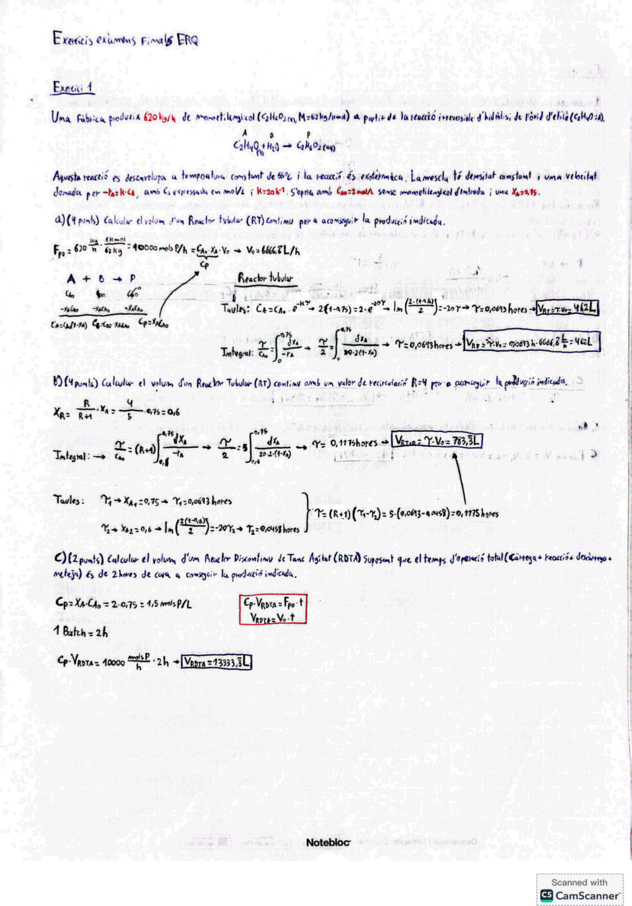 Exercicis exàmens Finals ERQ
Exercici 1
Una fàbrica produeix 620 kg/h de monoetilenglicol (C₂H₆O₂, M=62kg/kmol) a partir de la reacció irreversible d'hidròlisi de l'òxid d'etilè (C₂H₄O=A).
A B P
C₂H₄O + H₂O → C₂H₆O₂
Aquesta reacció es desenvolupa a temperatura constant de 55°C i la reacció és La mescla té densitat constant i una velocitat
donada per -rA=k·CA, amb C expressada en mol/L i k=20h⁻¹. S'opera amb CA0=2mol/L sense monoetilenglicol d'entrada i una XA=0,75.
a) (4 punts) Calcular el volum d'un Reactor tubular (RT) continu per a aconseguir la producció indicada.
Fp0 = 620 kg/h · 1kmol/62kg = 10000 mols P/h = CA0·XA·V0 → V0 = 6666,6̂ L/h
Cp
A + B → P
Reactor tubular
-XACA0 -XACA0 +XACA0
CA=CA0(1-XA) CB=CB0-XACA0 Cp=XACA0
Taules: CA=CA0·e^(-kτ) → 2(1-0,75)=2·e^(-20τ) → ln(2·(1-0,75)/2)=-20τ → τ=0,0693 hores → VRT=τ·V0=462L
Integral: τ/CA0 = ∫₀^0,75 dXA/-rA → τ/2 = ∫₀^0,75 dXA/20·2(1-XA) → τ=0,0693 hores → VRT=τ·V0=0,0693h·6666,6̂ L/h=462L
b) (4 punts) Calcular el volum d'un Reactor Tubular (RT) continu amb un valor de recirculació R=4 per a aconseguir la producció indicada.
XR = R/R+1 · XA = 4/5 · 0,75 = 0,6
Integral: → τ/CA0 = (R+1)∫0,6^0,75 dXA/-rA → τ/2 = 5∫0,6^0,75 dXA/20·2·(1-XA) → τ = 0,1175 hores → VRTAR = τ·V0 = 783,3̂L
Taules: τ₁ → XA1=0,75 → τ₁=0,0693 hores
τ=(R+1)(τ₁-τ₂)=5·(0,0693-0,0458)=0,1175 hores
τ₂ → XA2=0,6 → ln(2(1-0,6)/2)=-20τ₂ → τ₂=0,0458 hores
C) (2 punts) Calcular el volum d'un Reactor Discontinu de Tanc Agitat (RDTA) suposant que el temps d'operació total (càrrega + reacció + descàrrega +
neteja) és de 2 hores de cara a conseguir la producció indicada.
Cp=XA·CA0 = 2·0,75 = 1,5 mols P/L
Cp·VRDTA=Fp0·t
VRDTA=V0·t
1 Batch = 2h
Cp·VRDTA = 10000 mols P/h · 2h → VRDTA=13333,3̂L
Notebloc
Scanned with
CS CamScanner